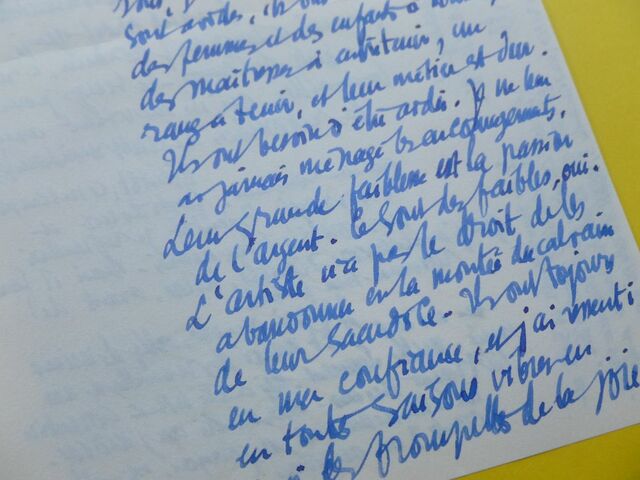 sont avides, ils ont
des femmes et des enfants à nourrir,
des maîtresses à entretenir, un
rang à tenir, et leur métier est dur.
Ils ont besoin d'être aidés. Je ne leur
ai jamais ménagé les encouragements.
Leur grande faiblesse est la passion
de l'argent. Ce sont des faibles, oui.
L'artiste n'a pas le droit de les
abandonner en la montée du calvaire
de leur sacerdoce. Ils ont toujours
eu ma confiance, et j'ai ressenti
en toute saisons vibrer en
les trompettes de la joie